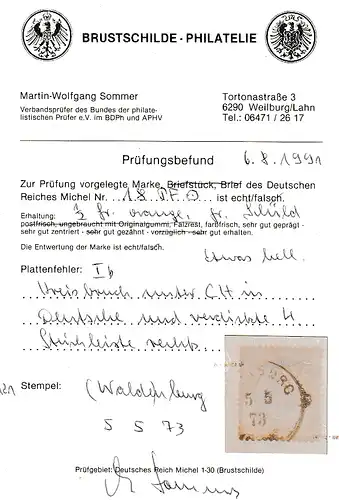 BRUSTSCHILDE - PHILATELIE
Martin-Wolfgang Sommer
Verbandsprüfer des Bundes der philate-
listischen Prüfer e.V. im BDPh und APHV
Tortonastraße 3
6290 Weilburg/Lahn
Tel.: 06471 / 26 17
Prüfungsbefund 6.8.1991
Zur Prüfung vorgelegte Marke, Briefstück, Brief des Deutschen
Reiches Michel Nr. 18 PF ist echt/falsch.
Erhaltung: ½ gr. orange, gr. Schild
postfrisch, ungebraucht mit Originalgummi, Falzrest, farbfrisch, sehr gut geprägt -
sehr gut zentriert - sehr gut gezähnt - vorzüglich - sehr gut erhalten.
Die Entwertung der Marke ist echt/falsch. etwas hell.
Plattenfehler: I b
Kreisbruch unter CH in
Deutsche und verdickte
Strichleiste rechts
Stempel: (Waldenburg
5 5 73
BURG
5 5
73
Prüfgebiet: Deutsches Reich Michel 1-30 (Brustschilde)
Sommer